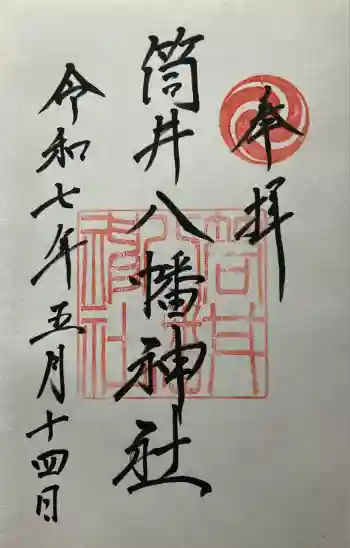 奉拝
筒井八幡神社
令和七年五月十四日
筒井八幡神社